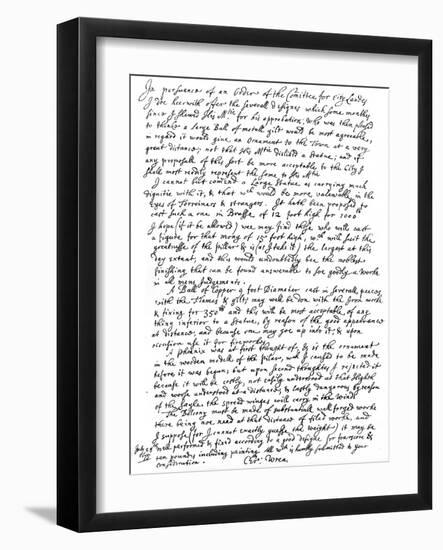 In persuance of an Order of the Comittee for City Landes
I doe heerwith offer the severall designes which some monthes
since I shewed His Matie for his approbation, who was then pleased
to thinke a large Ball of metall gilt would be most agreeable,
in regard it would give an Ornament to the Town at a very
great distance; not that His Matie disliked a Statue; and if
any proposall of this sort be more acceptable to the City I
shall most readily represent the same to His Matie
I cannot but comend a Large Statue as carrying much
dignitie with it, & that wch would be more valewable in the
Eyes of Forreiners & strangers. It hath been proposed to
cast such a one in Brasse of 12 foot high for 1000lb
I hope (if it be allowed) wee may find those who will cast
a figure for that mony of 15 foot high, wch will suit the
greatnesse of the pillar & is (as I take it) the largest at this
day extant; and this would undoubtedly bee the noblest
finishing that can be found answerable to soe goodly a worke
in all mens Judgements.
A Ball of Copper 9 foot Diameter cast in severall peeces
with the Flames & gilt, may well be don with the Iron worke
& fixing for 350lb and this will be most acceptable of any
thing inferior to a Statue, by reason of the good appearance
at distance, and because one may goe up into it, & upon
occasion use it for fireworkes.
A phoenix was at first thought of, & is the ornament
in the wooden modell of the pillar, wch I caused to be made
before it was begun; but upon second thoughtes I rejected it
because it will be costly, not easily understood at that Highth
and worse understood at a distance, & lastly dangerous by reason
of the sayle the spread winges will carry in the winde
The Belcony must be made of substantiall well forged worke
there being noe need at that distance of filed worke, and
I suppose (for I cannot exactly guesse the weight) it may be
well performed & fixed according to a good designe for fourscore &
ten poundes including painting. All wch is humbly submitted to your
consideration.
July 28
Chr: Wren